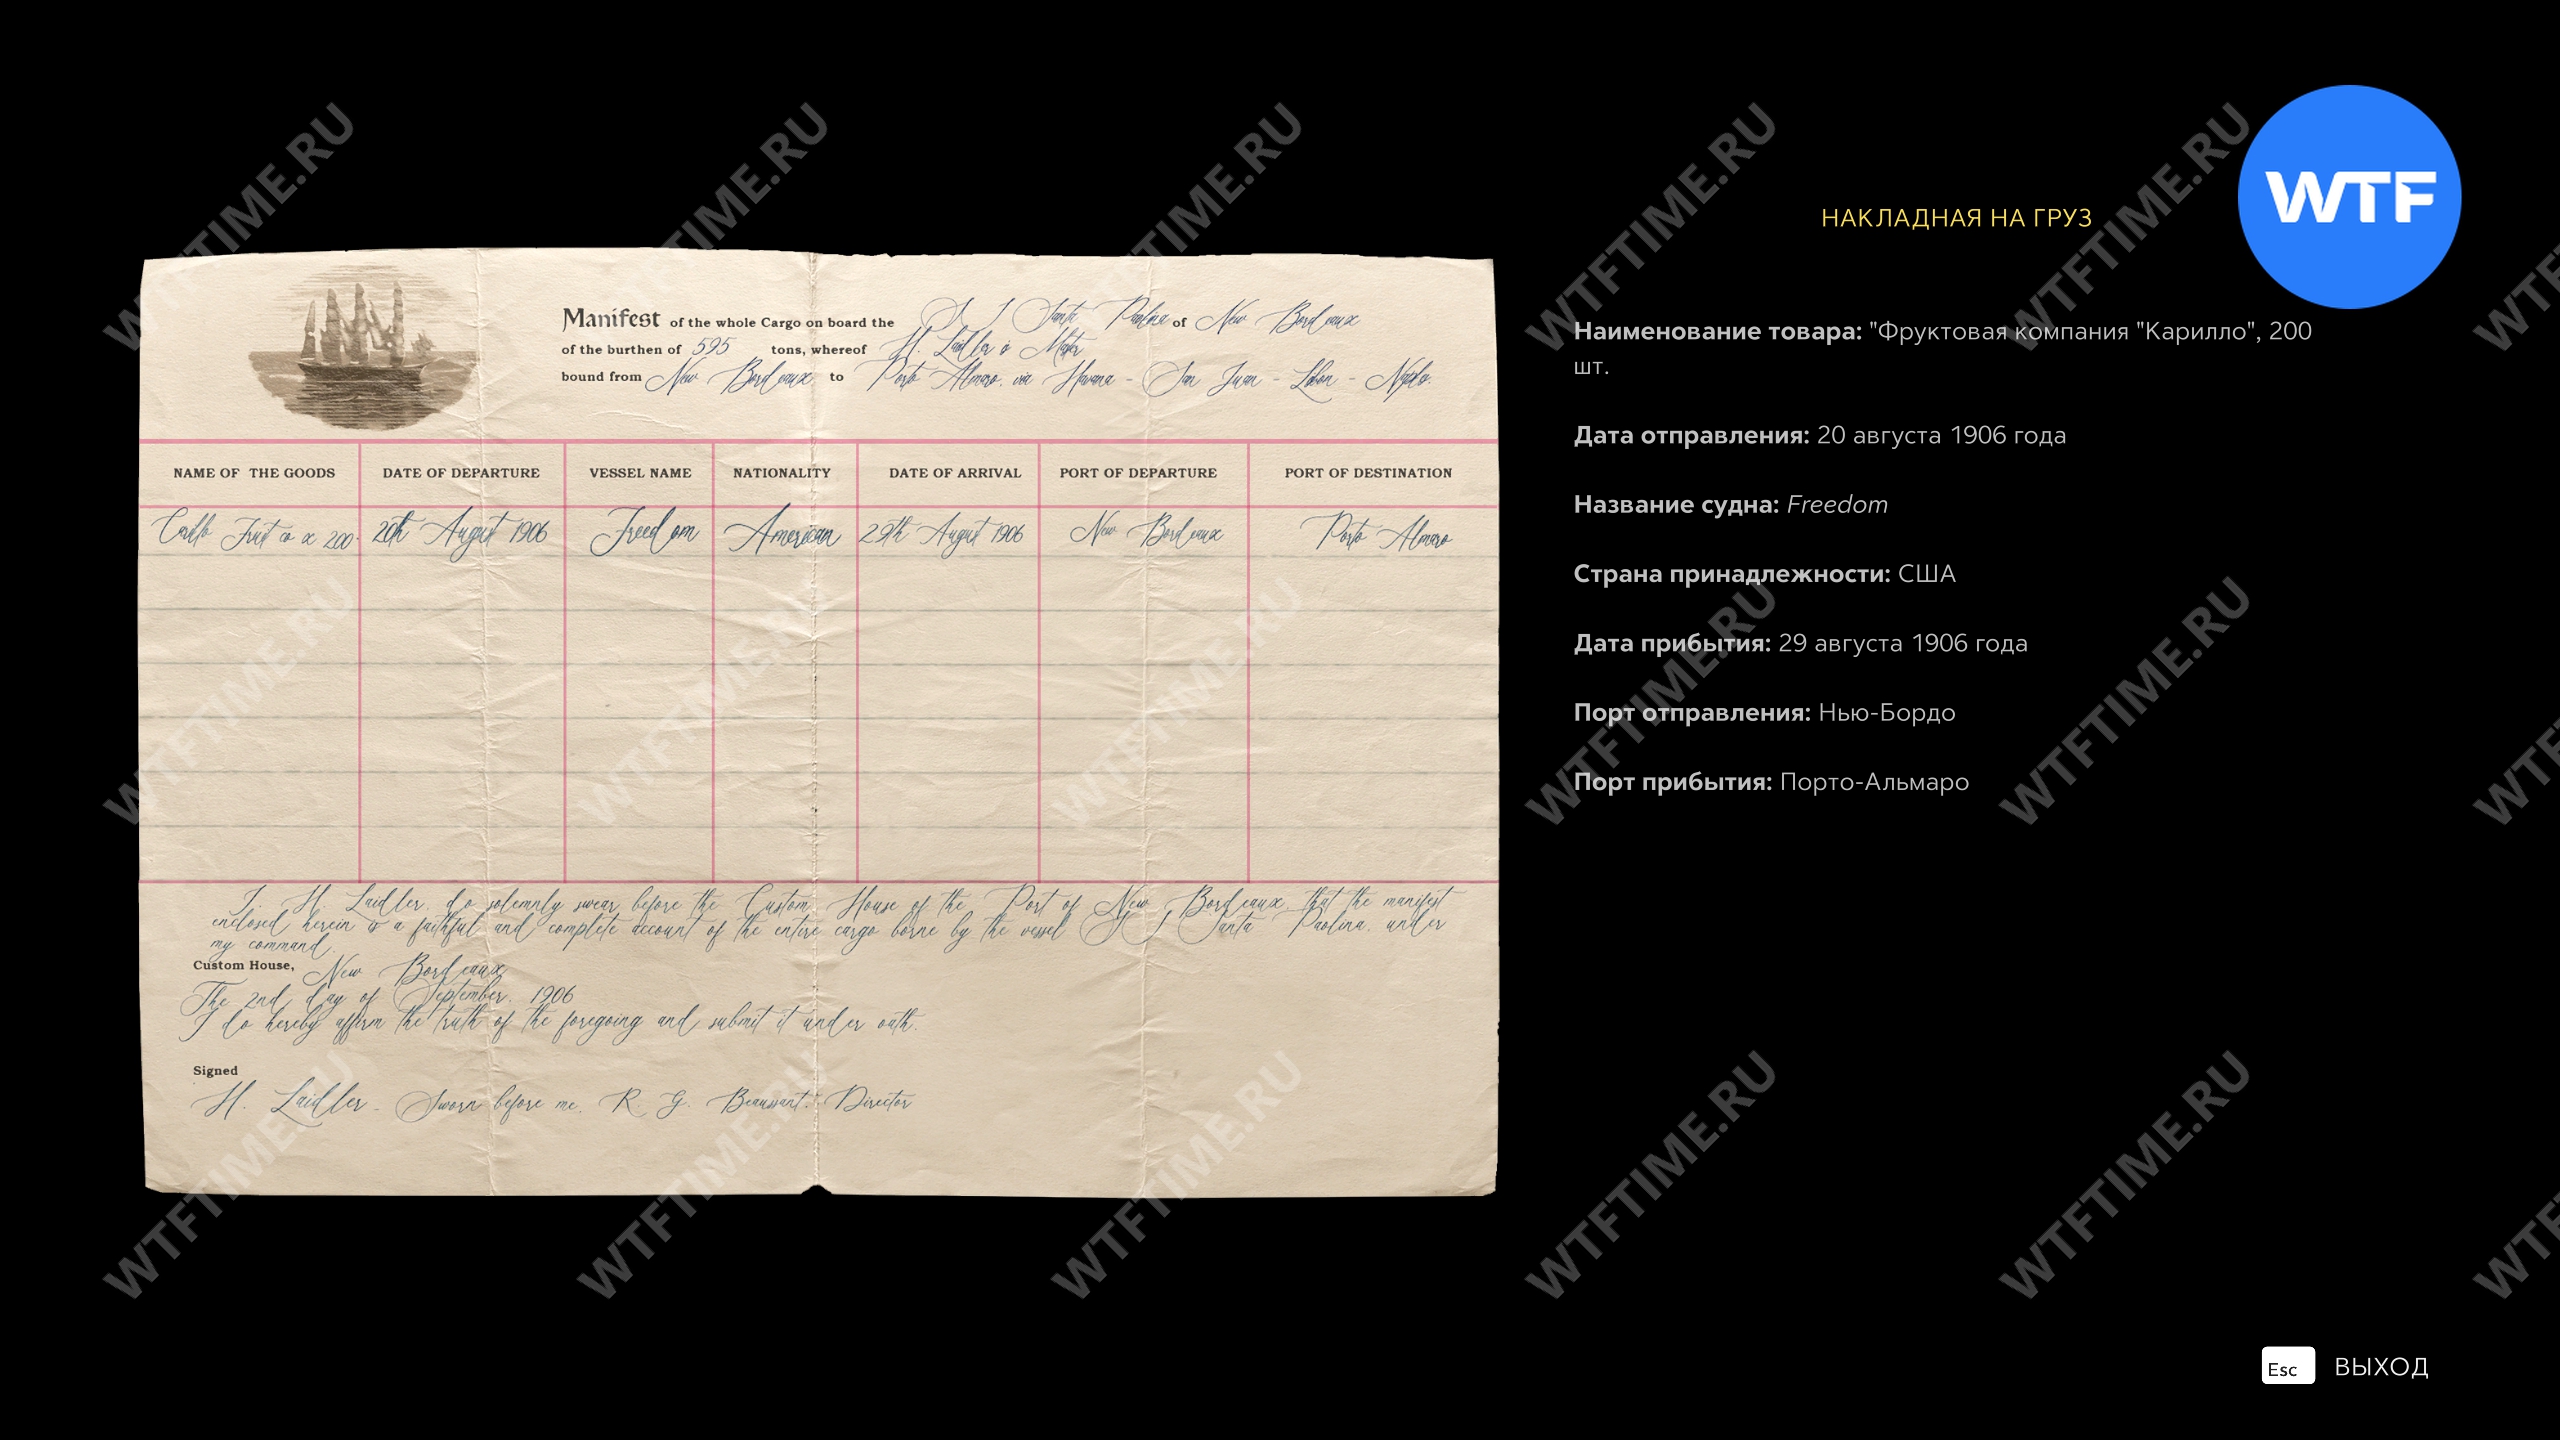 WTF
НАКЛАДНАЯ НА ГРУЗ
Manifest of the whole Cargo on board the S S Santa Paolina of New Bordeaux
of the burthen of 595 tons, whereof H. Laidler is Master
bound from New Bordeaux to Porto Almaro, via Havana - San Juan - Lisbon - Naples.
NAME OF THE GOODS DATE OF DEPARTURE VESSEL NAME NATIONALITY DATE OF ARRIVAL PORT OF DEPARTURE PORT OF DESTINATION
Carillo Fruit co x 200 20th August 1906 Freedom American 29th August 1906 New Bordeaux Porto Almaro
I, H. Laidler, do solemnly swear before the Custom House of the Port of New Bordeaux, that the manifest
enclosed herein is a faithful and complete account of the entire cargo borne by the vessel S S Santa Paolina, under
my command.
Custom House, New Bordeaux
The 2nd day of September, 1906
I do hereby affirm the truth of the foregoing and submit it under oath.
Signed
H. Laidler - Sworn before me, R. G. Beaussant, Director
Наименование товара: "Фруктовая компания "Карилло", 200
шт.
Дата отправления: 20 августа 1906 года
Название судна: Freedom
Страна принадлежности: США
Дата прибытия: 29 августа 1906 года
Порт отправления: Нью-Бордо
Порт прибытия: Порто-Альмаро
Esc ВЫХОД
WTFTIME.RU